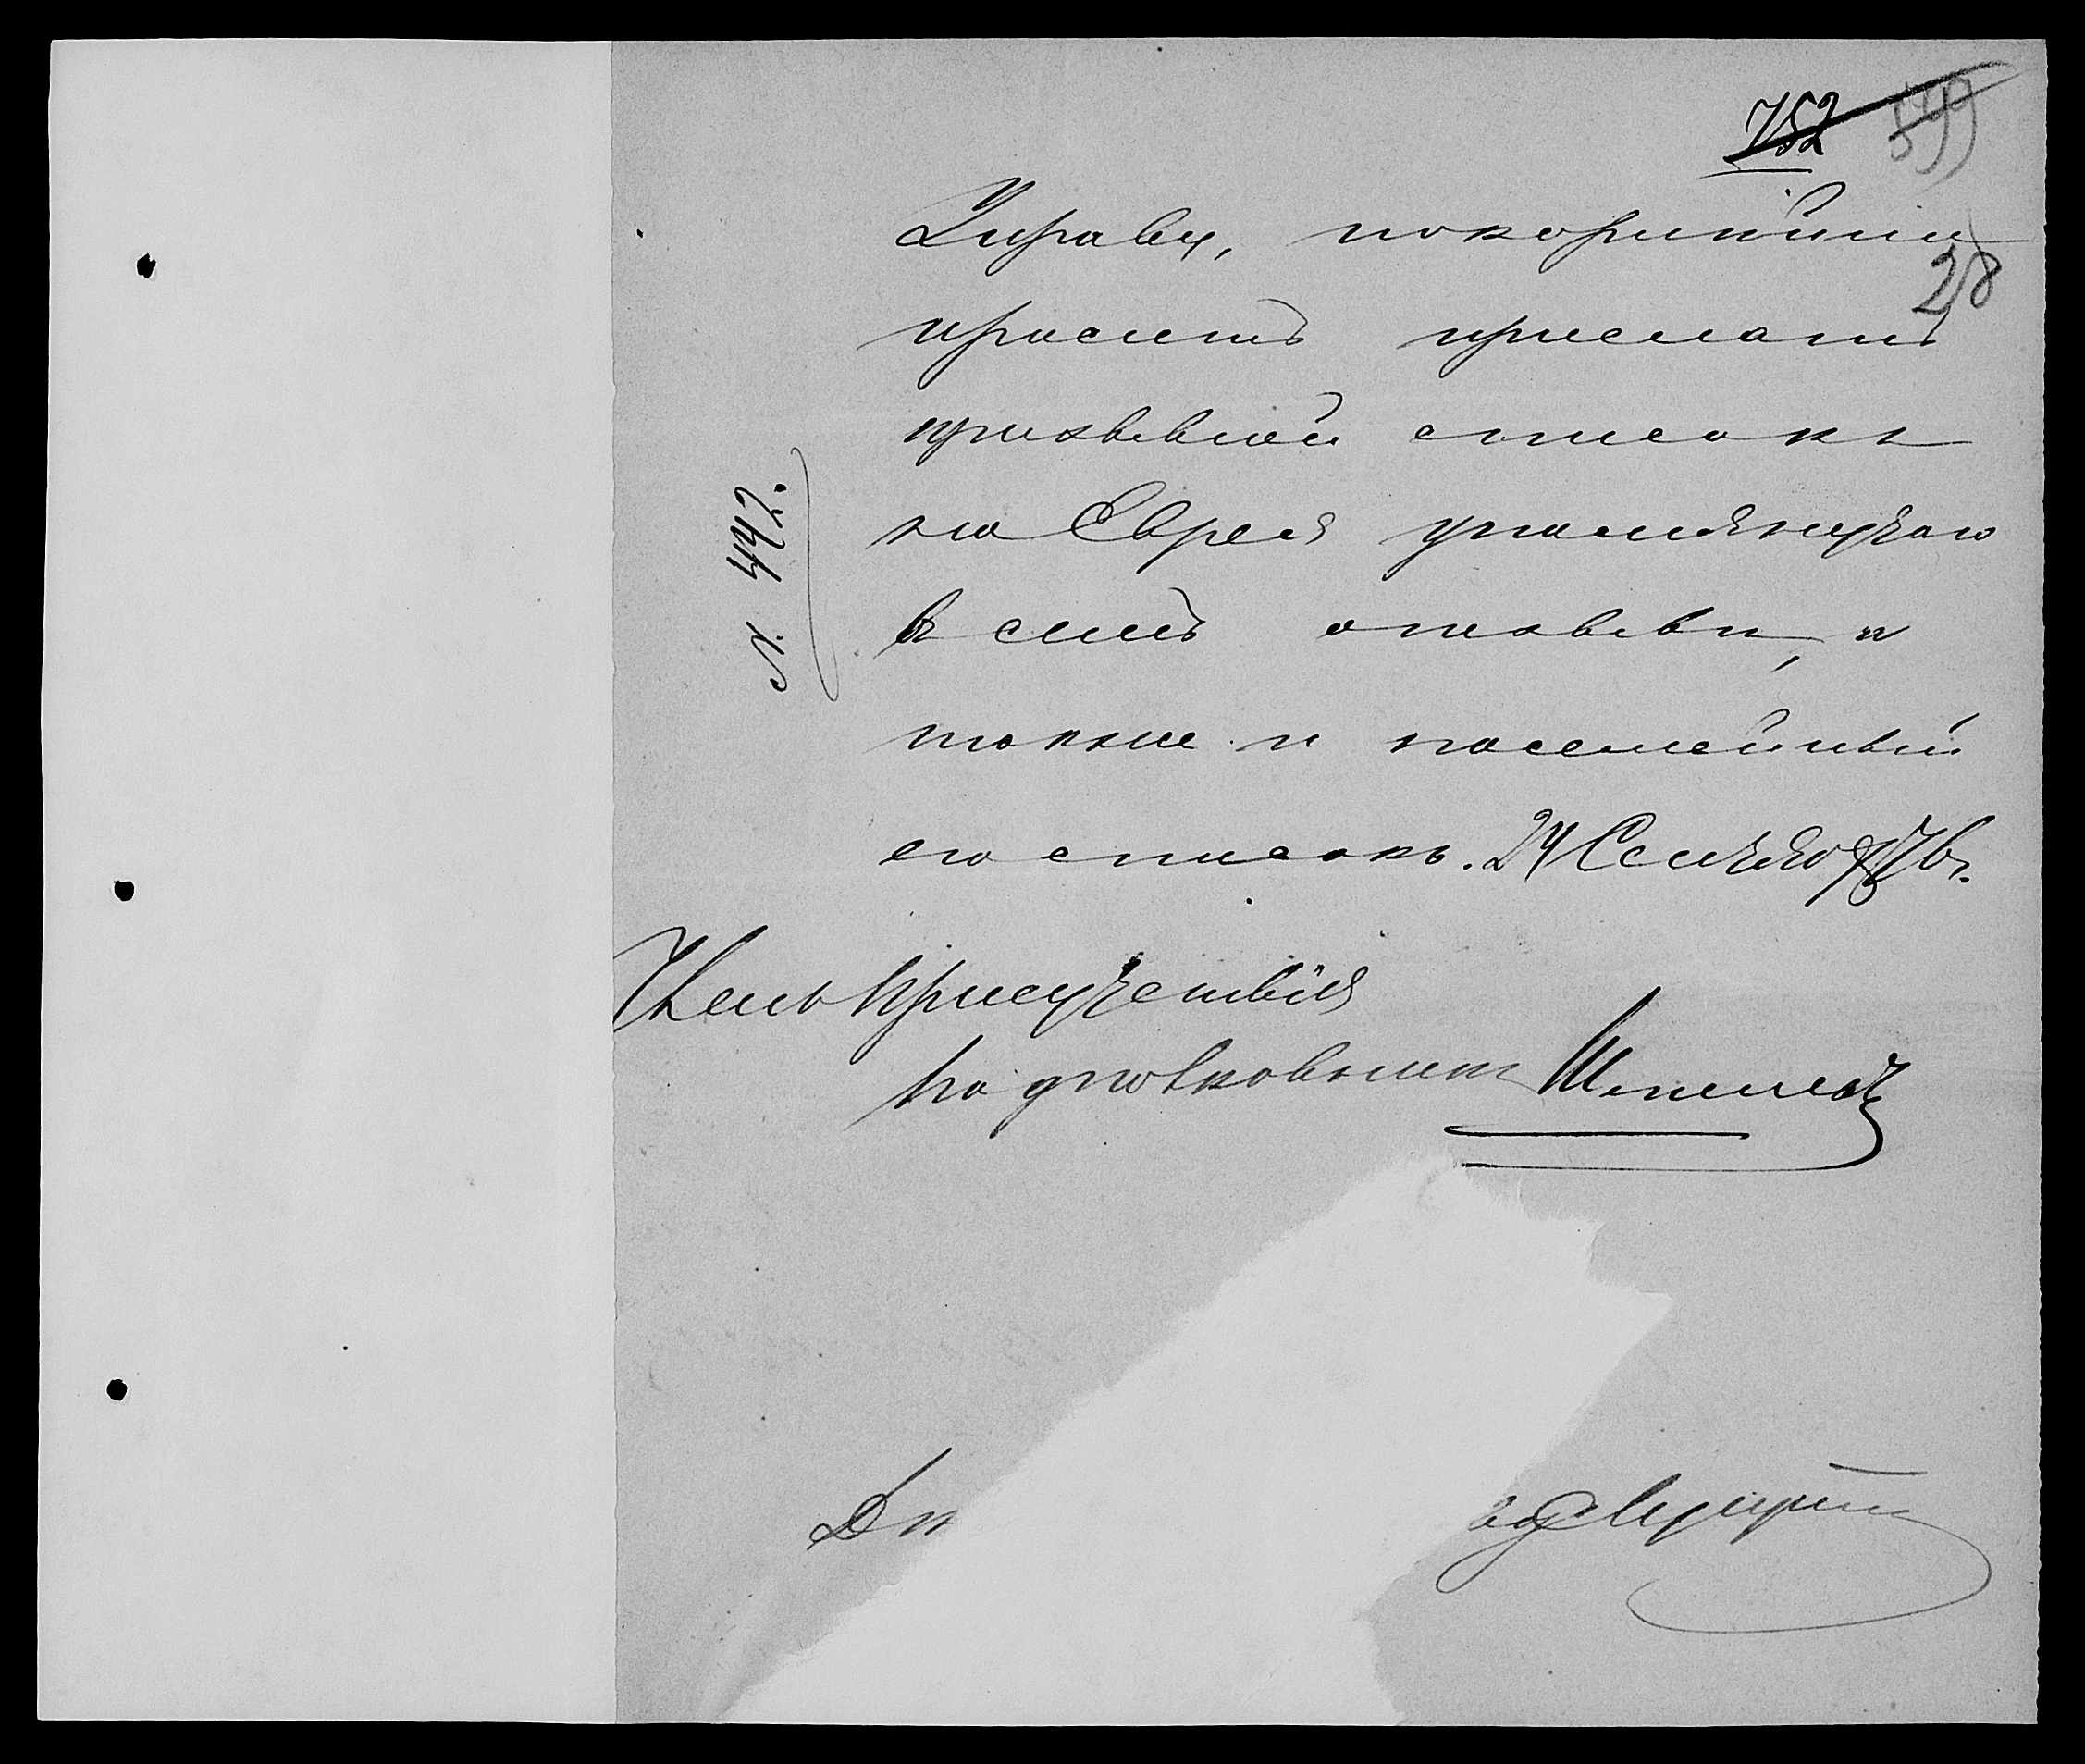 752 599
28
Управу, покорнѣйше
проситъ прислать
призывной списокъ
на Еврея упомянутаго
въ семъ отзывѣ, и
также и посемейный
его списокъ. 24 Сентября 76 г.
№ 442.
Членъ Присутствія
Подполковникъ